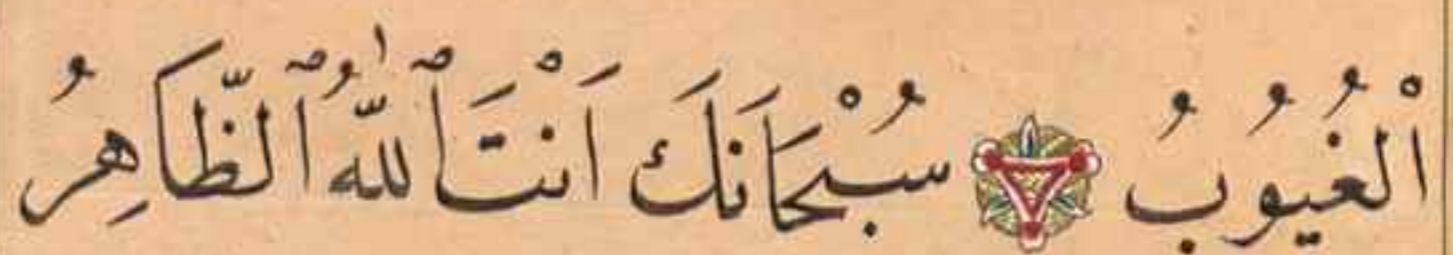 الْغُيُوبُ سُبْحَانَكَ اَنْتَ ٱللّٰهُ ٱلظَّاهِرُ